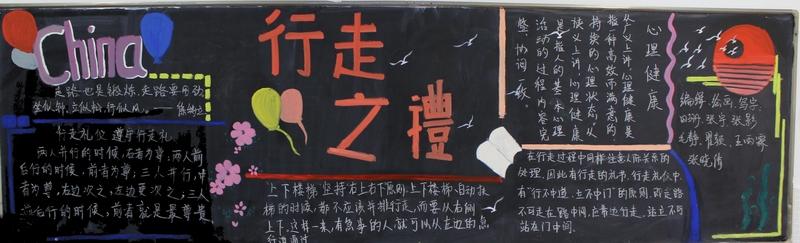 China
走路也是锻炼,走路要用劲
坐似钟,立似松,行似风。
行走礼仪 遵守行走礼
两人并行的时候,右者为尊,两人前
后行的时候,前者为尊;三人并行,中
者为尊,右边次之,左边更次之;三人
行的时候,前者就是最尊贵
行走
之禮
上下楼梯,坚持右上右下原则,上下楼梯、自动扶
梯的时候,都不应该并排行走,而要从右侧
上下。这样一来,有急事的人,就可以从左边的急
行道通过
心理健康
从广义上讲,心理健康是
指一种高效而满意的
持续的心理状态,从
狭义上讲,心理健康
是指人的基本心理
活动的过程内容完
整、协调一致。
在行走过程中同样注意人际关系的
处理,因此有行走的礼节。行走礼仪中,
有“行不中道,立不中门”的原则,即走路
不可走在路中间,应靠边行走,站立不可
站在门中间。
编辑、绘画、写字:
张宇 张影
毛静 王雨霖
张晓倩